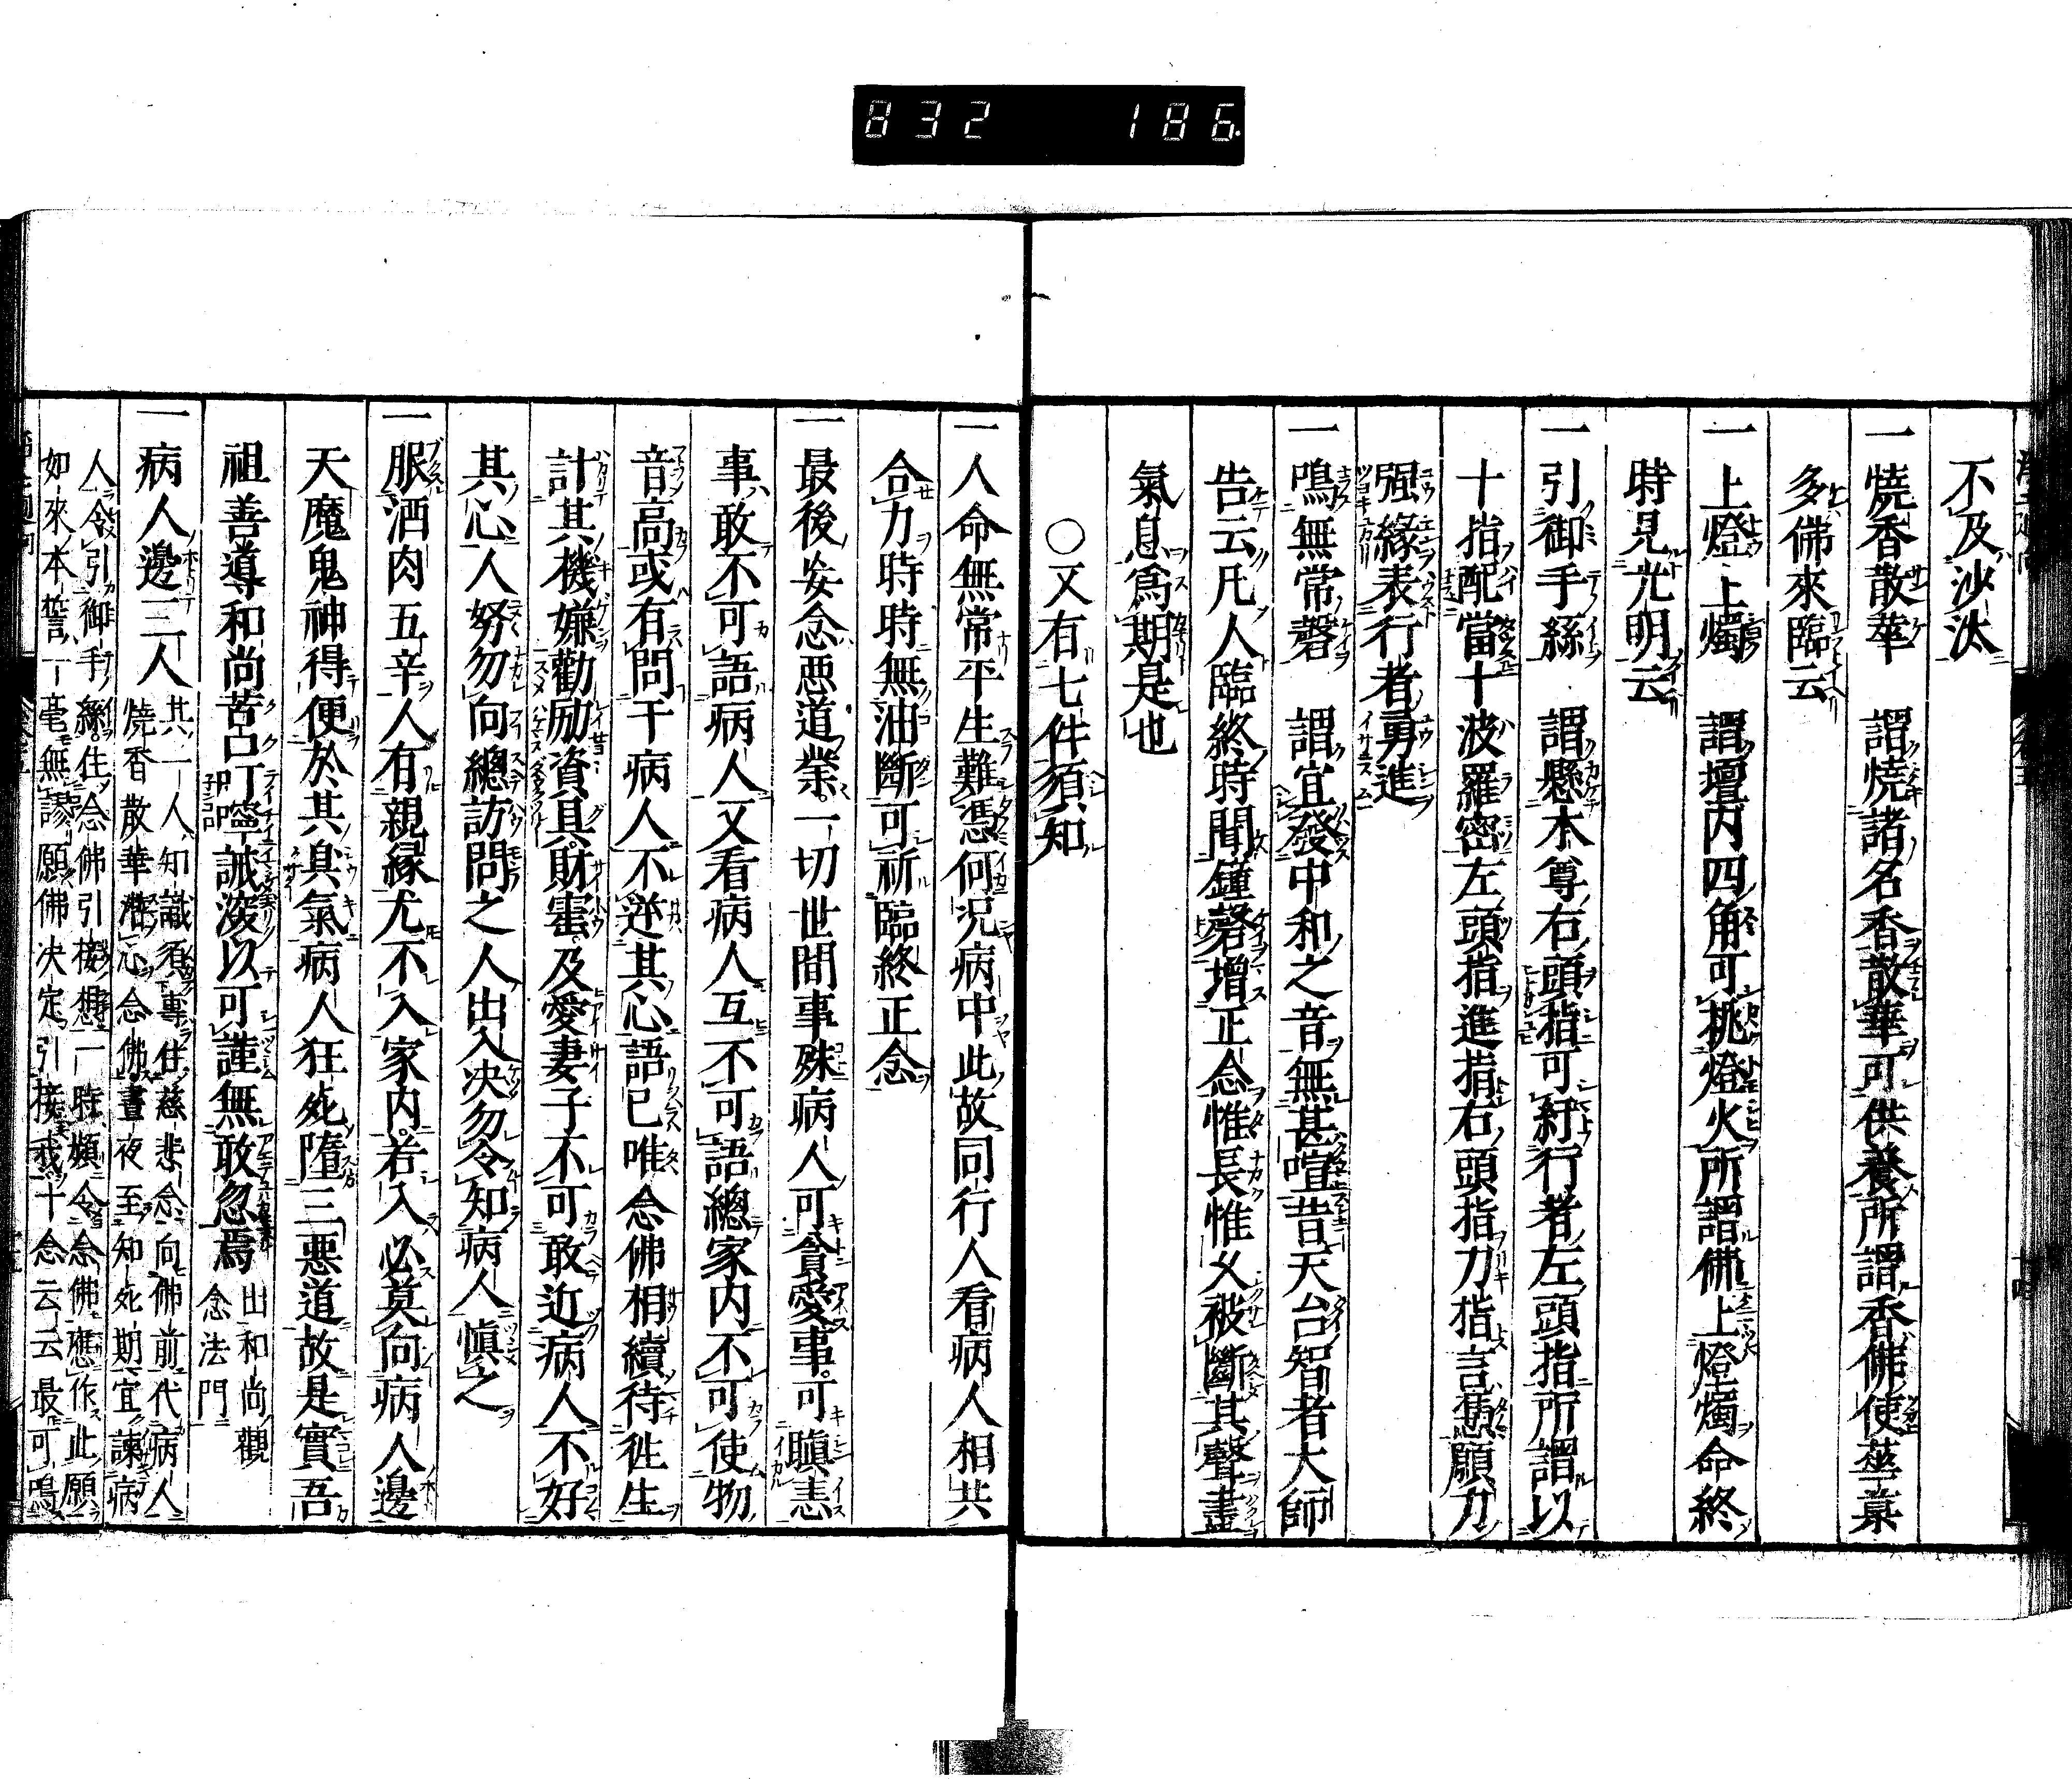 832 186
不及沙汰
一燒香散華 謂燒諸名香散華可供養所謂香佛使華菓
多佛來臨云
一上燈上燭 謂壇內四角可挑燈火所謂佛上燈燭命終
時見光明云
一引御手絲 謂懸本尊右頭指可紆行者左頭指所謂以
十指配當十波羅密左頭指進指右頭指力指言慿願力
强緣表行者勇進
一鳴無常磬 謂宜發中和之音無甚喧昔天台智者大師
告云凡人臨終時聞鐘磬增正念惟長惟久被斷其聲盡
氣息爲期是也
〇又有七件須知
一人命無常平生難慿何况病中此故同行人看病人相共
合力時時無油斷可祈臨終正念
一最後妄念悪道業。一切世間事殊病人可貪愛事。可瞋恚
事敢不可語病人又看病人互不可語總家內不可使物
音高或有問于病人不逆其心語已唯念佛相續待徃生
計其機嫌勸励資具。財寚。及愛妻子不可敢近病人不好
其心人努勿向總訪問之人出入決勿令知病人愼之
一服酒肉五辛人有親縁尤不入家內。若入必莫向病人邊
天魔鬼神得便於其臭氣病人狂死墮三悪道故是實吾
祖善導和尚苦口叮嚀誡後以可謹無敢忽焉 出和尚觀
念法門
一病人邊三人 其一人知識須專住慈悲念向佛前代病人
燒香散華 心念佛晝夜至知死期宜諫病
人令引御手絲。住念佛引接想一時頻令念佛應作此願
如來本誓一毫無謬願佛决定引接我十念云云最可鳴